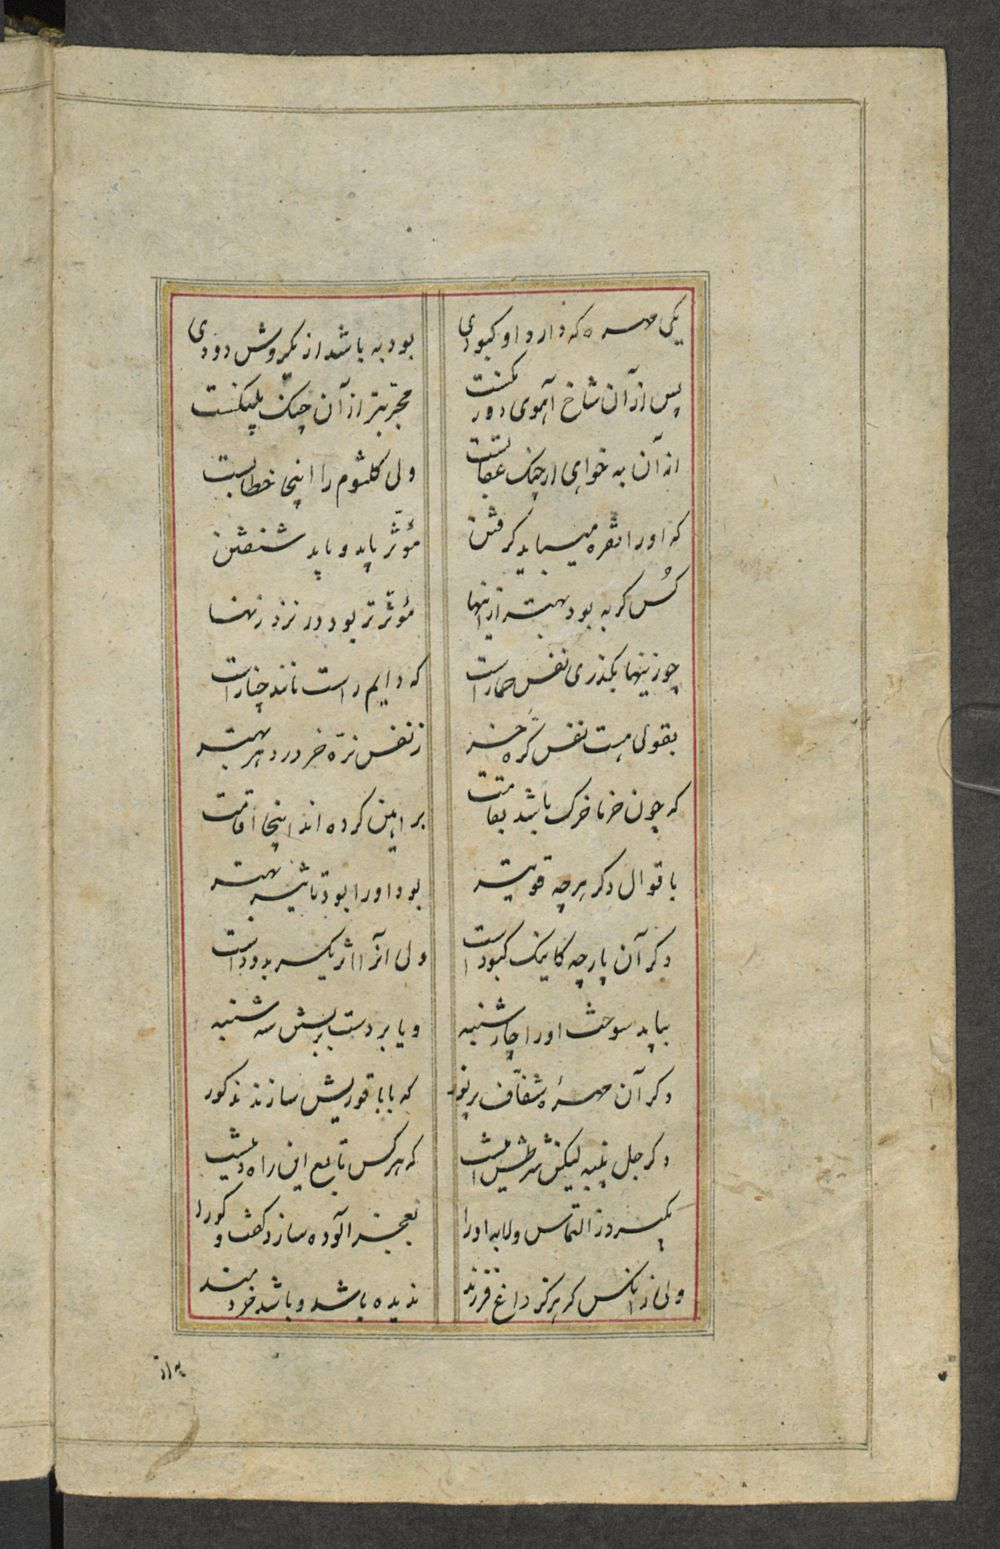 یکی مهره که دارد او کبودی
بود به باشد از یکروش دودی
پس از آن شاخ آهوی دور نکست
مجرّبتر از آن چنک پلنکست
از آن به خواهی ار چنک عقابست
ولی کلثوم را اینجا خطابست
که او را نقره میباید کرفتن
مؤثّر باید و باید شنفتن
کُس کربه بود بهتر از اینها
مؤثّرتر بود در نزد زنها
چو زینها بکذری نفس حمار است
که دایم راست مانند چنار است
بقولی هست نفس کرّه خر
ز نفس نرّه خر در دهر بهتر
که چون خر ما خرک باشد بقامت
براین کرده‌اند اینجا اقامت
باقوال دکر هرچه قویتر
بود او را بود تاثیر بهتر
دکر آن پارچه کاینک کبود است
ولی آنرا اثر یکسر بدود است
بباید سوخت او را چارشنبه
و یا بر دست بربستش سه شنبه
دکر آن مهرهٔ شفّاف پرنور
که بابا قوریش سازند مذکور
دکر جل پنبه لیکن شرطش اینست
که هرکس تابع این راه و دینست
بکیرد ز التماس و لابه او را
ولی ز آنکس که هرکز داغ فرزند
ندیده باشد و باشد خردمند